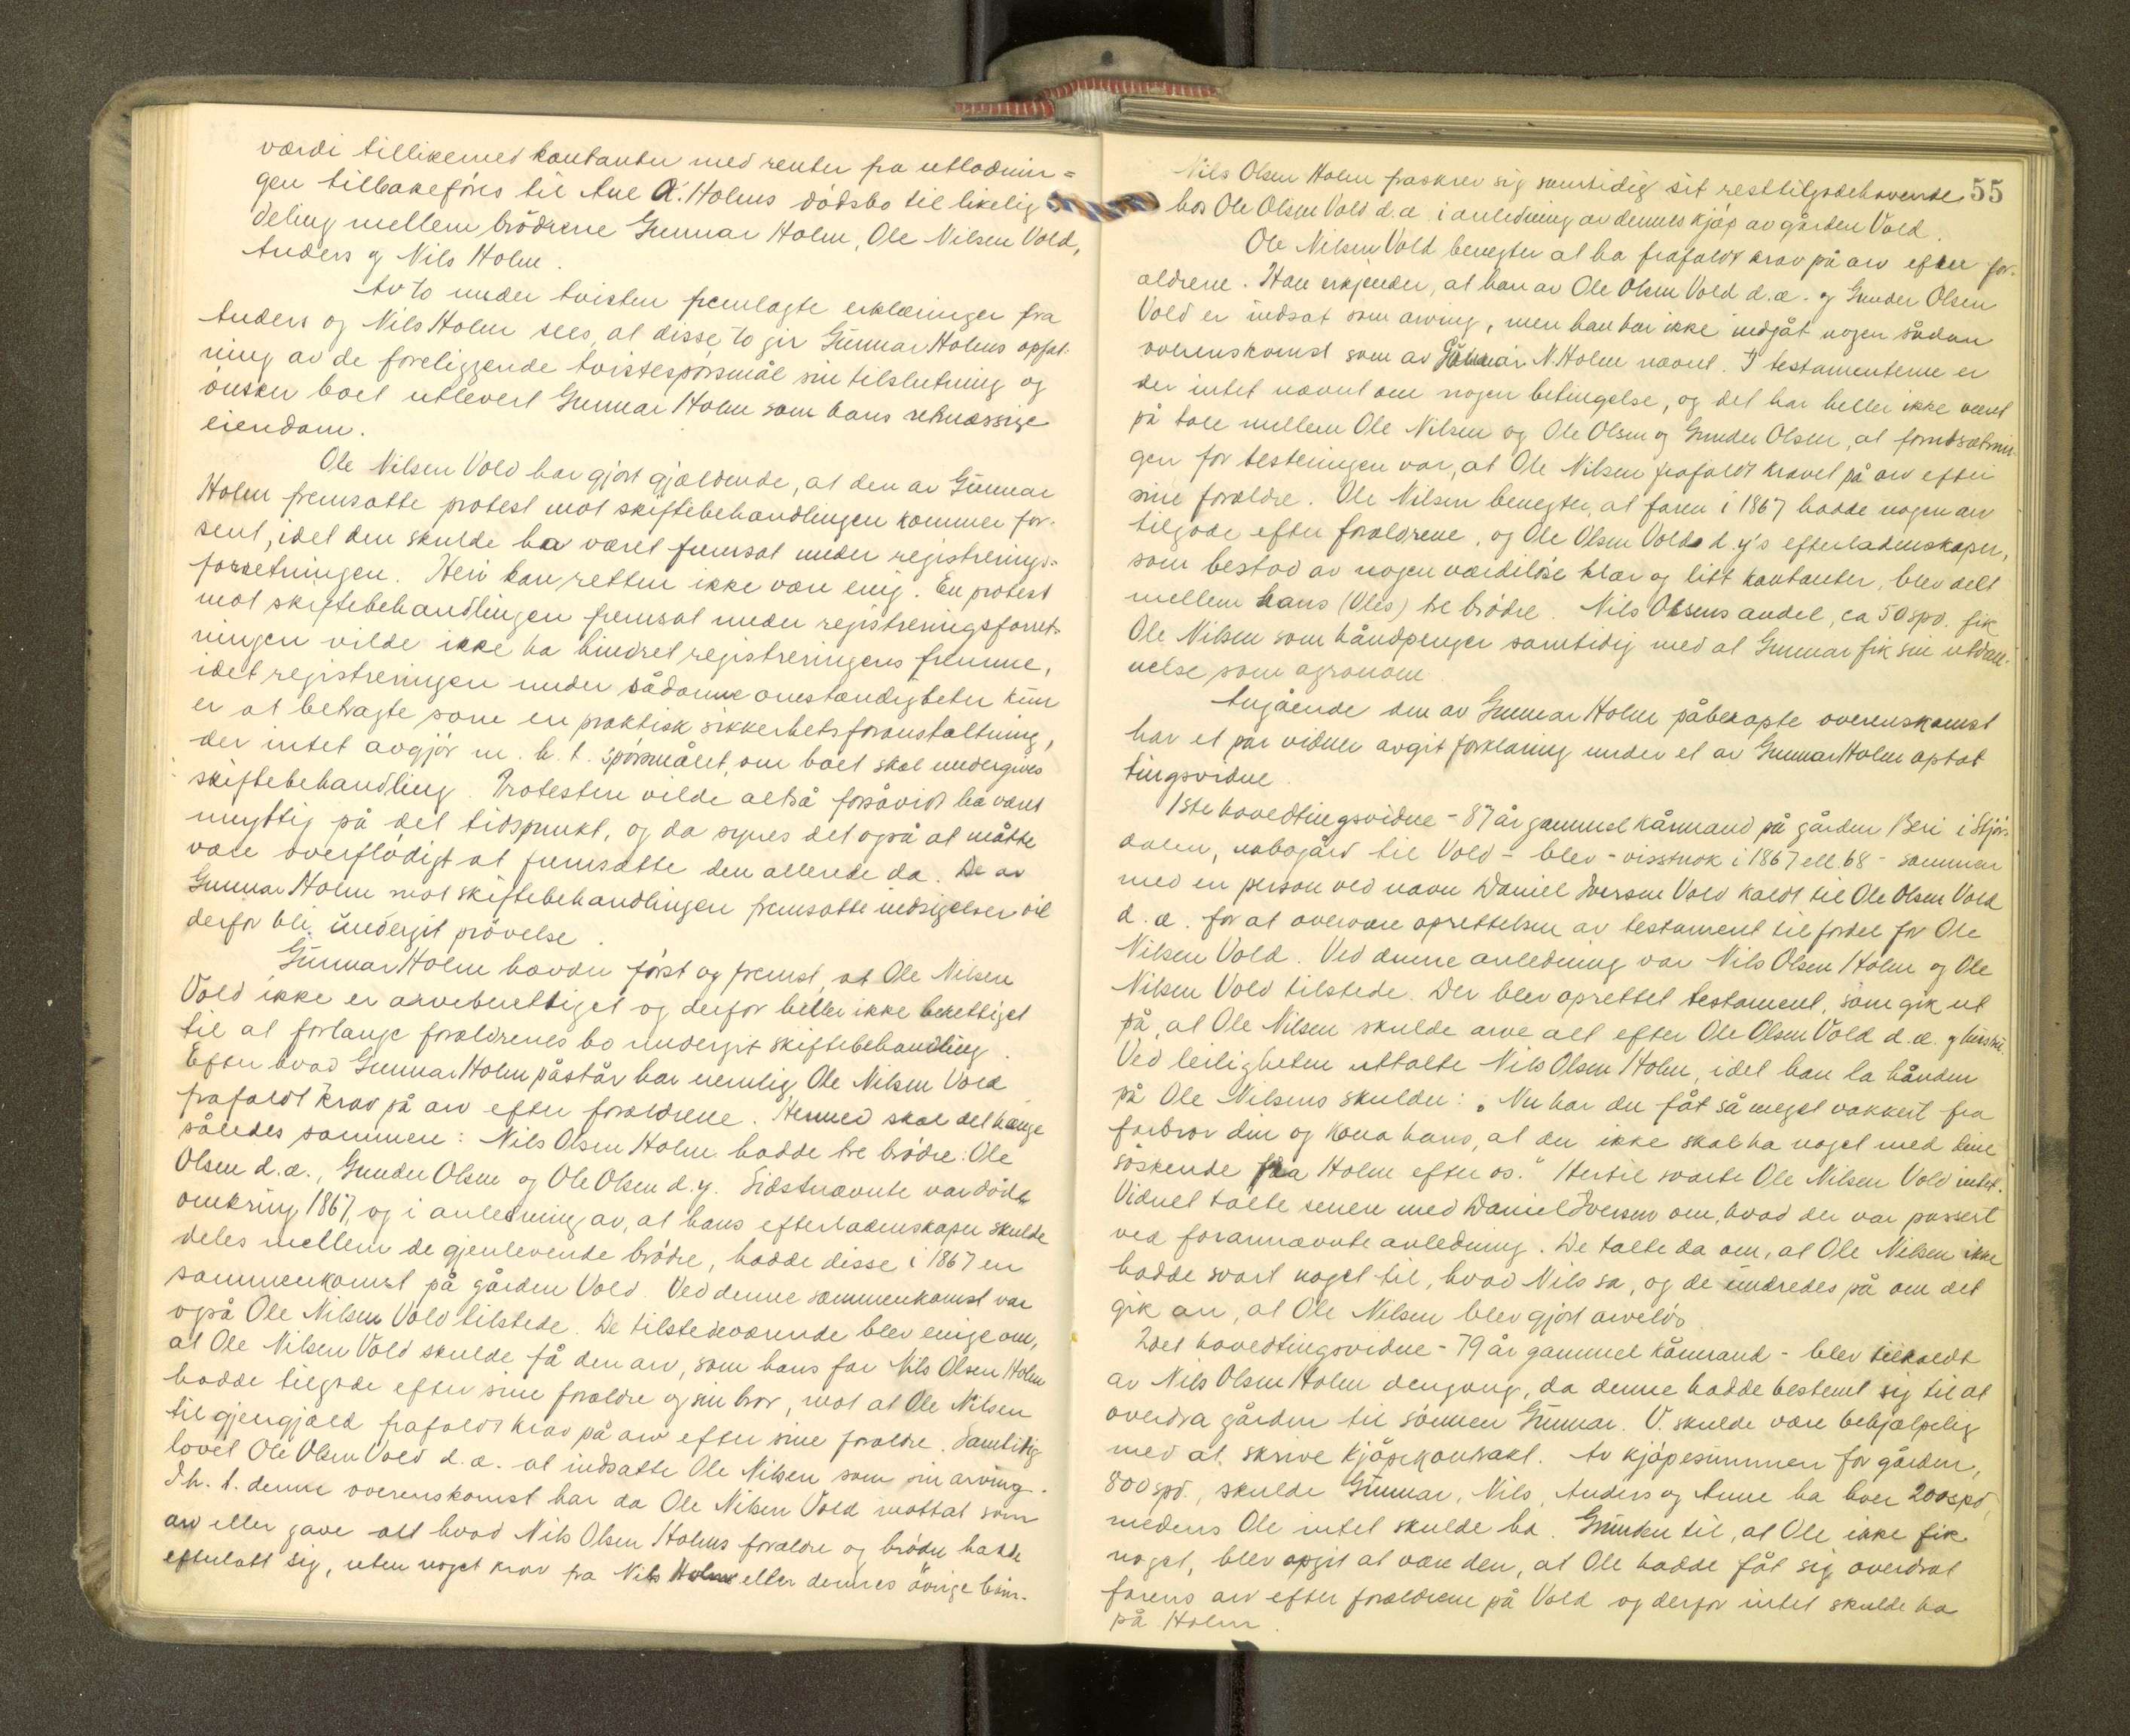 værdi tillikemed kontanter med renter fra utlodnin=
gen tilbakeføres til Ane A. Holms dødsbo til likelig
deling mellem brødrene Gunnar Holm, Ole Nilsen Vold,
Anders og Nils Holm.
Av to under tvisten fremlagte erklæringer fra
Anders og Nils Holm sees, at disse to gir Gunnar Holms opfat-
ning av de foreliggende tvistespørsmål sin tilslutning og
ønsker boet utlevert Gunnar Holm som hans retmæssige
eiendom.
Ole Nilsen Vold har gjort gjældende, at den av Gunnar
Holm fremsatte protest mot skiftebehandlingen kommer for-
sent, idet den skulde ha været fremsat under registrerings-
forretningen. Heri kan retten ikke være enig. En protest
mot skiftebehandlingen fremsat under registreringsforret-
ningen vilde ikke ha hindret registreringens fremme,
idet registreringen under sådanne omstændigheter kun
er at betragte som en praktisk sikkerhetsforanstaltning,
der intet avgjør m. h. t. spørsmålet, om boet skal undergives
skiftebehandling. Protesten vilde altså forsåvidt ha været
unyttig på det tidspunkt, og da synes det også at måtte
være overflødigt at fremsætte den allerede da. De av
Gunnar Holm mot skiftebehandlingen fremsatte indsigelser vil
derfor bli undergit prøvelse.
Gunnar Holm hævder først og fremst, at Ole Nilsen
Vold ikke er arveberettiget og derfor heller ikke berettiget
til at forlange forældrenes bo undergit skiftebehandling.
Efter hvad Gunnar Holm påstår har nemlig Ole Nilsen Vold
frafaldt krav på arv efter forældrene. Hermed skal det hænge
således sammen: Nils Olsen Holm hadde tre brødre: Ole
Olsen d.æ., Gunder Olsen og Ole Olsen d.y. Sidstnævnte var død
omkring 1867, og i anledning av, at hans efterladenskaper skulde
deles mellem de gjenlevende brødre, hadde disse i 1867 en
sammenkomst på gården Vold. Ved denne sammenkomst var
også Ole Nilsen Vold tilstede. De tilstedeværende blev enige om,
at Ole Nilsen Vold skulde få den arv, som hans far Nils Olsen Holm
hadde tilgode efter sine forældre og sin bror, mot at Ole Nilsen
til gjengjæld frafaldt krav på arv efter sine forældre. Samtidig
lovet Ole Olsen Vold d.æ. at indsætte Ole Nilsen som sin arving.
I h. t. denne overenskomst har da Ole Nilsen Vold mottat som
arv eller gave alt hvad Nils Olsen Holms forældre og brødre hadde
efterlatt sig, uten noget krav fra Nils Holm eller dennes øvrige barn.
55
Nils Olsen Holm fraskrev sig samtidig sit resttilgodehavende
hos Ole Olsen Vold d.æ. i anledning av dennes kjøp av gården Vold.
Ole Nilsen Vold benegter at ha frafaldt krav på arv efter for-
ældrene. Han erkjender, at han av Ole Olsen Vold d.æ. og Gunder Olsen
Vold er indsat som arving, men han har ikke indgåt nogen sådan
overenskomst som av Gunnar N. Holm nævnt. I testamentene er
der intet nævnt om nogen betingelse, og det har heller ikke været
på tale mellem Ole Nilsen og Ole Olsen og Gunder Olsen, at forutsætnin-
gen for testeringen var, at Ole Nilsen frafaldt kravet på arv efter
sine forældre. Ole Nilsen benegter, at faren i 1867 hadde nogen arv
tilgode efter forældrene, og Ole Olsen Volds d.y's efterladenskaper,
som bestod av nogen værdiløse klær og litt kontanter, blev delt
mellem hans (Oles) tre brødre. Nils Olsens andel, ca 50 spd. fik
Ole Nilsen som håndpenger samtidig med at Gunnar fik sin utdan-
nelse som agronom.
Angående den av Gunnar Holm påberopte overenskomst
har et par vidner avgit forklaring under et av Gunnar Holm optat
tingsvidne.
1ste hovedtingsvidne - 87 år gammel kårmand på gården Beri i Stjør-
dalen, nabogård til Vold - blev - visstnok i 1867 ell. 68 - sammen
med en person ved navn Daniel Iversen Vold kaldt til Ole Olsen Vold
d.æ. for at overvære oprettelsen av testament til fordel for Ole
Nilsen Vold. Ved denne anledning var Nils Olsen Holm og Ole
Nilsen Vold tilstede. Der blev oprettet testament, som gik ut
på, at Ole Nilsen skulde arve alt efter Ole Olsen Vold d.æ. og hustru.
Ved leiligheten uttalte Nils Olsen Holm, idet han la hånden
på Ole Nilsens skulder: „Nu har du fåt så meget vakkert fra
farbror din og kona hans, at du ikke skal ha noget med dine
søskende fra Holm efter os." Hertil svarte Ole Nilsen Vold intet.
Vidnet talte senere med Daniel Iversen om, hvad der var passert
ved forannævnte anledning. De talte da om, at Ole Nilsen ikke
hadde svart noget til, hvad Nils sa, og de undredes på om det
gik an, at Ole Nilsen blev gjort arveløs.
2det hovedtingsvidne - 79 år gammel kårmand - blev tilkaldt
av Nils Olsen Holm dengang, da denne hadde bestemt sig til at
overdra gården til sønnen Gunnar. V. skulde være behjælpelig
med at skrive kjøpekontrakt. Av kjøpesummen for gården,
800 spd., skulde Gunnar, Nils, Anders og Anne ha hver 200 spd,
medens Ole intet skulde ha. Grunden til, at Ole ikke fik
noget, blev opgit at være den, at Ole hadde fåt sig overdrat
farens arv efter forældrene på Vold og derfor intet skulde ha
på Holm.